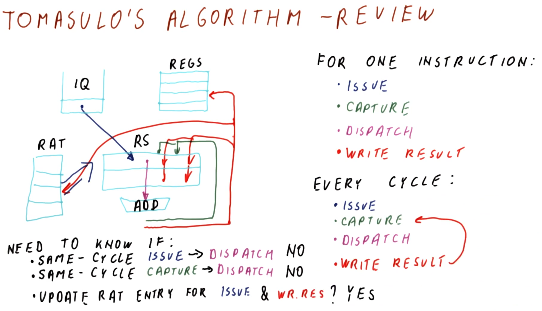 TOMASULO'S ALGORITHM - REVIEW
IQ
REGS
RAT
RS
ADD
FOR ONE INSTRUCTION:
• ISSUE
• CAPTURE
• DISPATCH
• WRITE RESULT
EVERY CYCLE:
• ISSUE
• CAPTURE
• DISPATCH
• WRITE RESULT
NEED TO KNOW IF:
• SAME-CYCLE ISSUE → DISPATCH NO
• SAME-CYCLE CAPTURE → DISPATCH NO
• UPDATE RAT ENTRY FOR ISSUE & WR.RES? YES